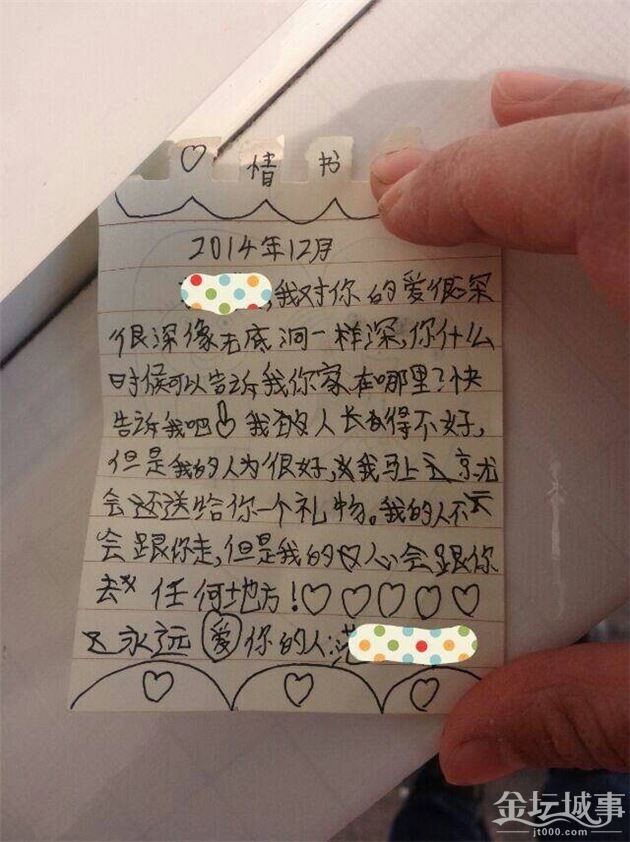 ♡ 情书
2014年12月
,我对你的爱很深
很深像无底洞一样深,你什么
时候可以告诉我你家在哪里?快
告诉我吧 我的人长得不好,
但是我的人为很好,我马上就
会还送给你一个礼物。我的人不
会跟你走,但是我的心会跟你
去任何地方!♡♡♡♡♡
永远爱你的人:范
♡ ♡ ♡
金坛城事
jt000.com